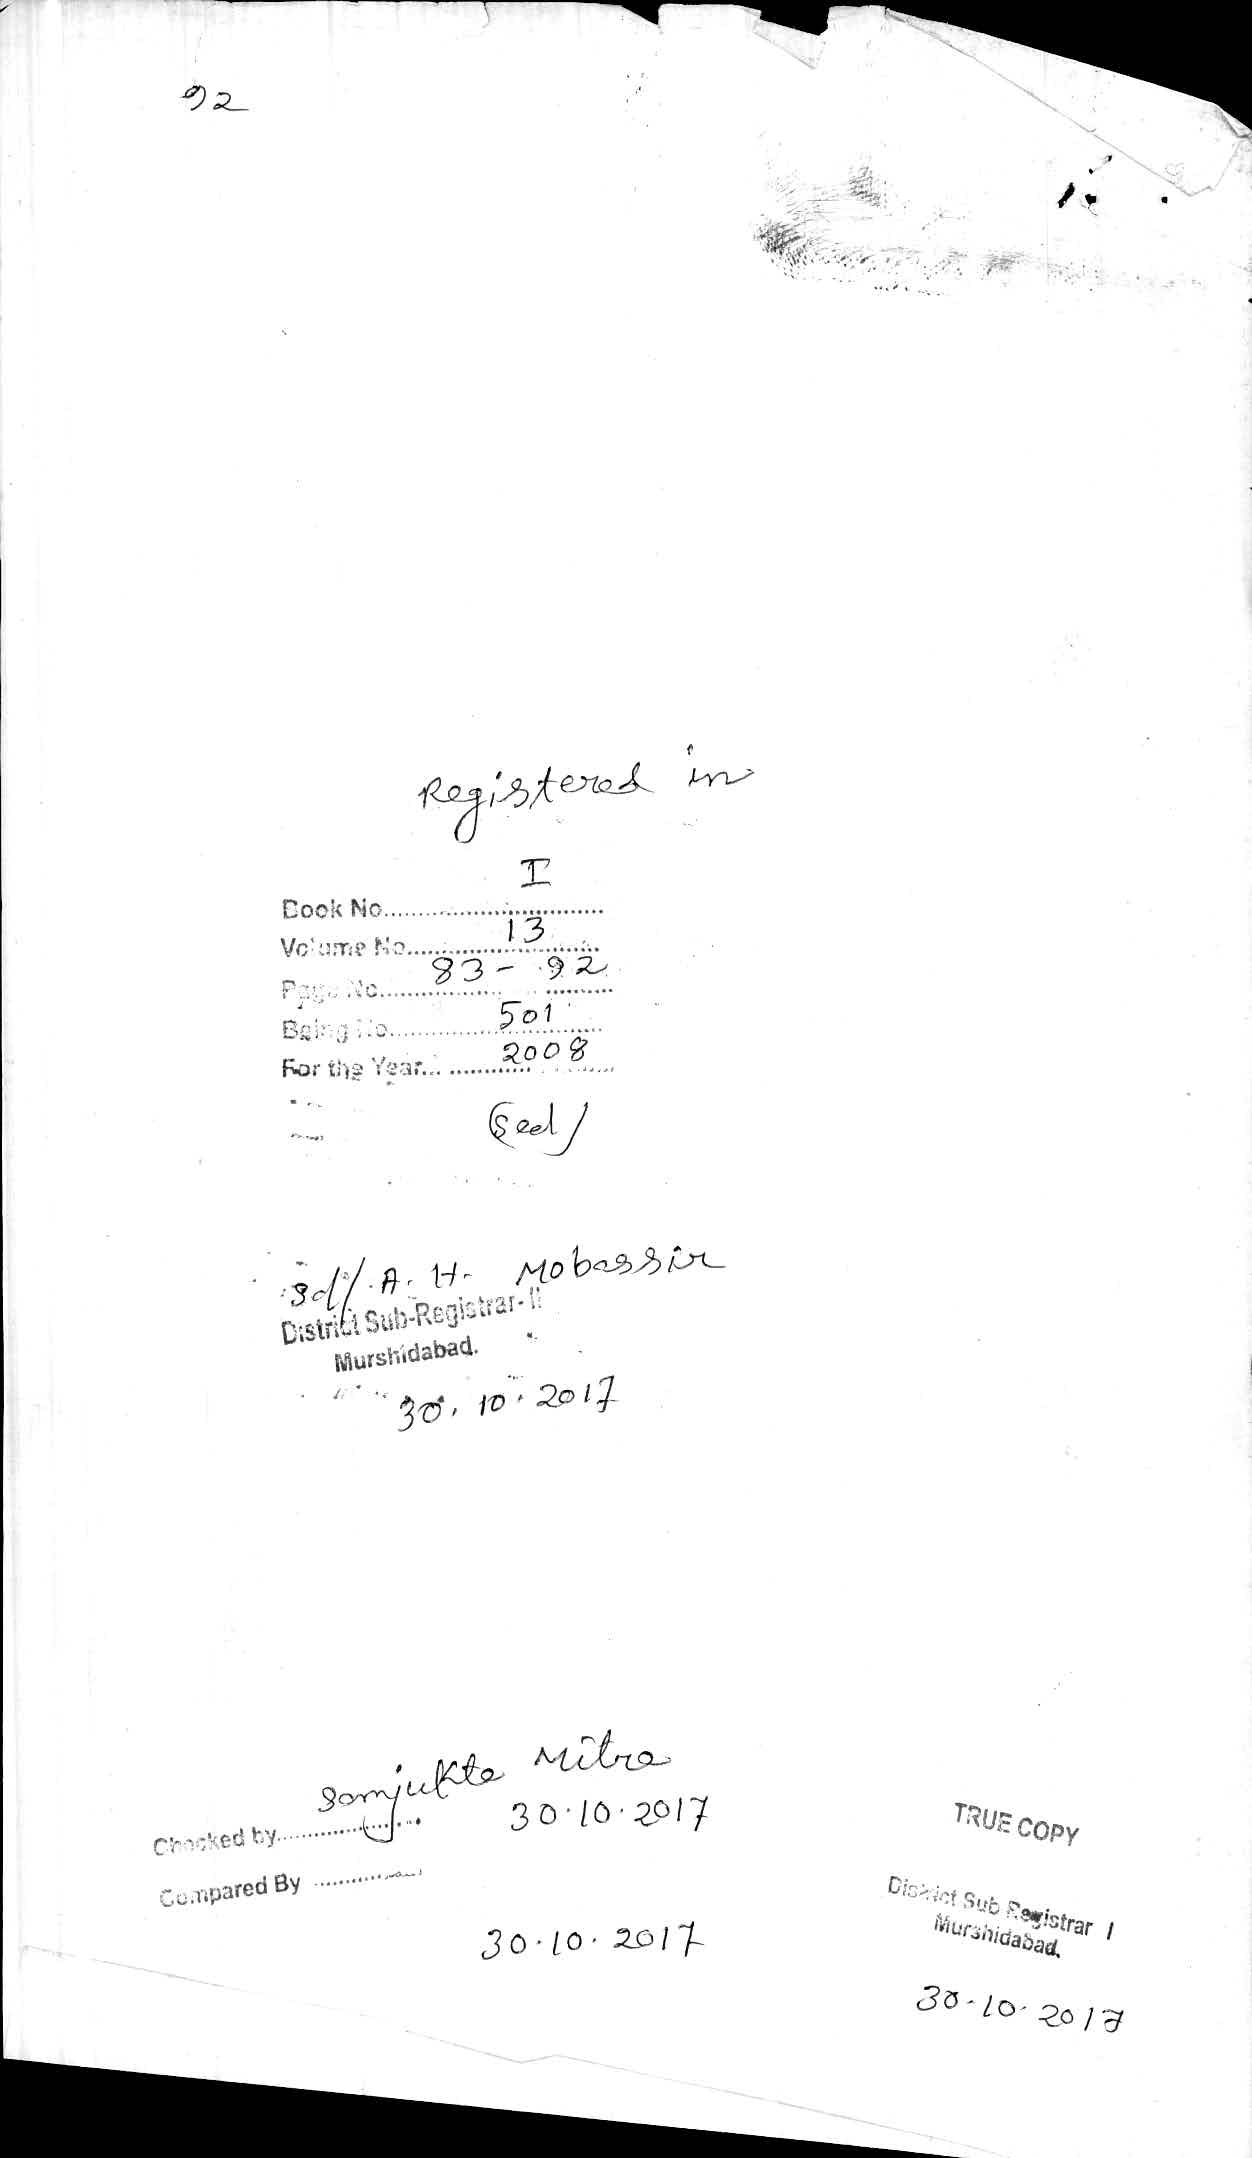 92
Registered in
Book No. I
Volume No. 13
Page No. 83 - 92
Being No. 501
For the Year... 2008
(Seal)
Sd/ A. H. Mobassir
District Sub-Registrar-II
Murshidabad.
30.10.2017
Samjukta Mitra
Checked by
30.10.2017
Compared By
30.10.2017
TRUE COPY
District Sub Registrar I
Murshidabad.
30.10.2017